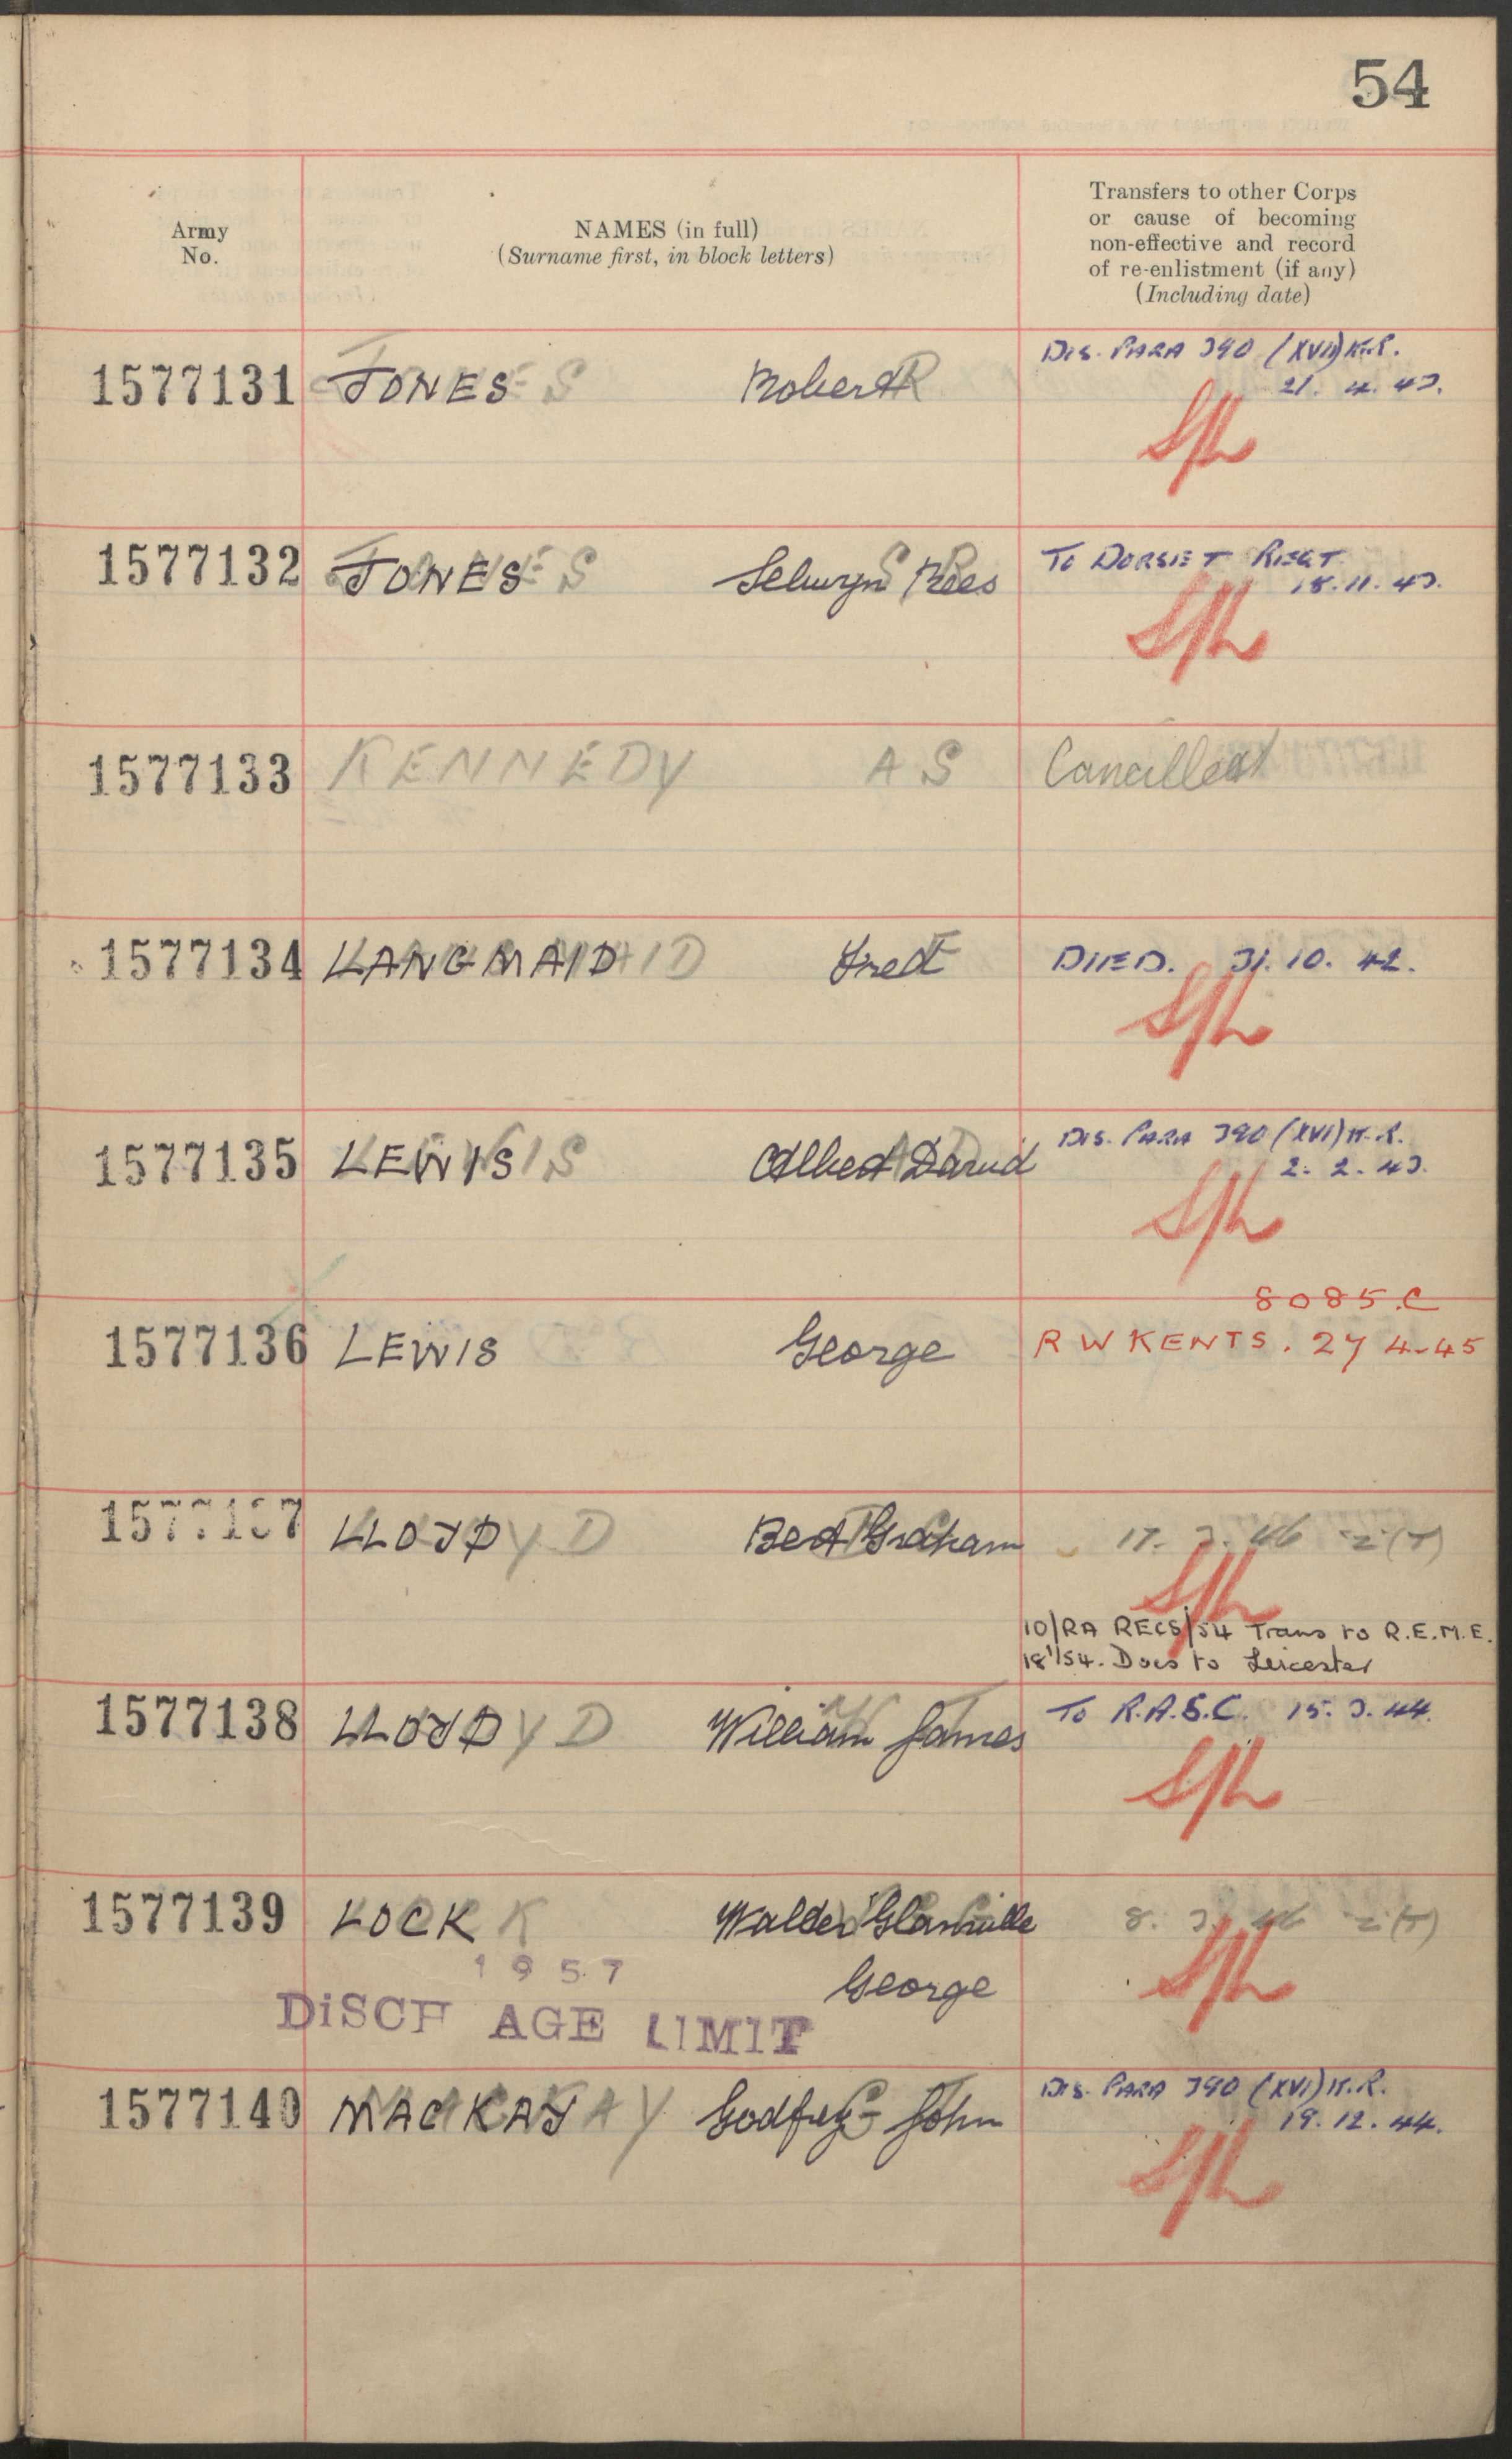 54
Army
No.
NAMES (in full)
(Surname first, in block letters)
Transfers to other Corps
or cause of becoming
non-effective and record
of re-enlistment (if any)
(Including date)
1577131 JONES Robert DIS. PARA 390 (XVII) K.R.
21. 4. 43.
1577132 JONES Selwyn Rees TO DORSET REGT.
18. 11. 43.
1577133 KENNEDY A S Cancelled
1577134 LANGMAID Fred DIED. 31. 10. 42.
1577135 LEWIS Albert David DIS. PARA 390 (XVI) K.R.
2. 2. 43.
8085.C
1577136 LEWIS George R W KENTS. 27 4-45
1577137 LLOYD Bert Graham 17. 3. 46 Z(T)
10/RA RECS/54 Trans to R.E.M.E.
18/1/54. Docs to Leicester
1577138 LLOYD William James TO R.A.S.C. 15. 3. 44.
1577139 LOCK Walder Glanville 8. 3. 46 Z(T)
1957 George
DISCH AGE LIMIT
1577140 MACKAY Godfrey John DIS. PARA 390 (XVI) K.R.
19. 12. 44.